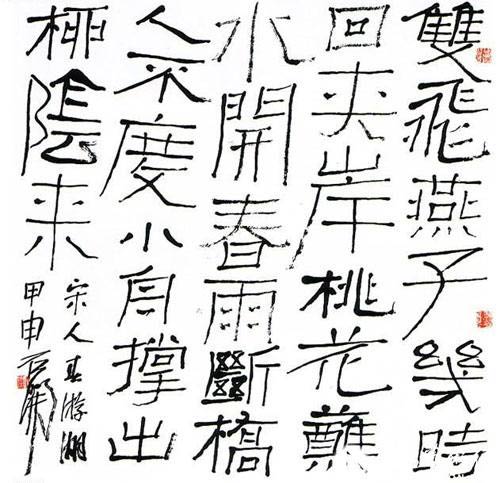 雙飛燕子幾時
回夾岸桃花蘸
水開春雨斷橋
人不度小舟撑出
柳陰来
宋人春游湖
甲申